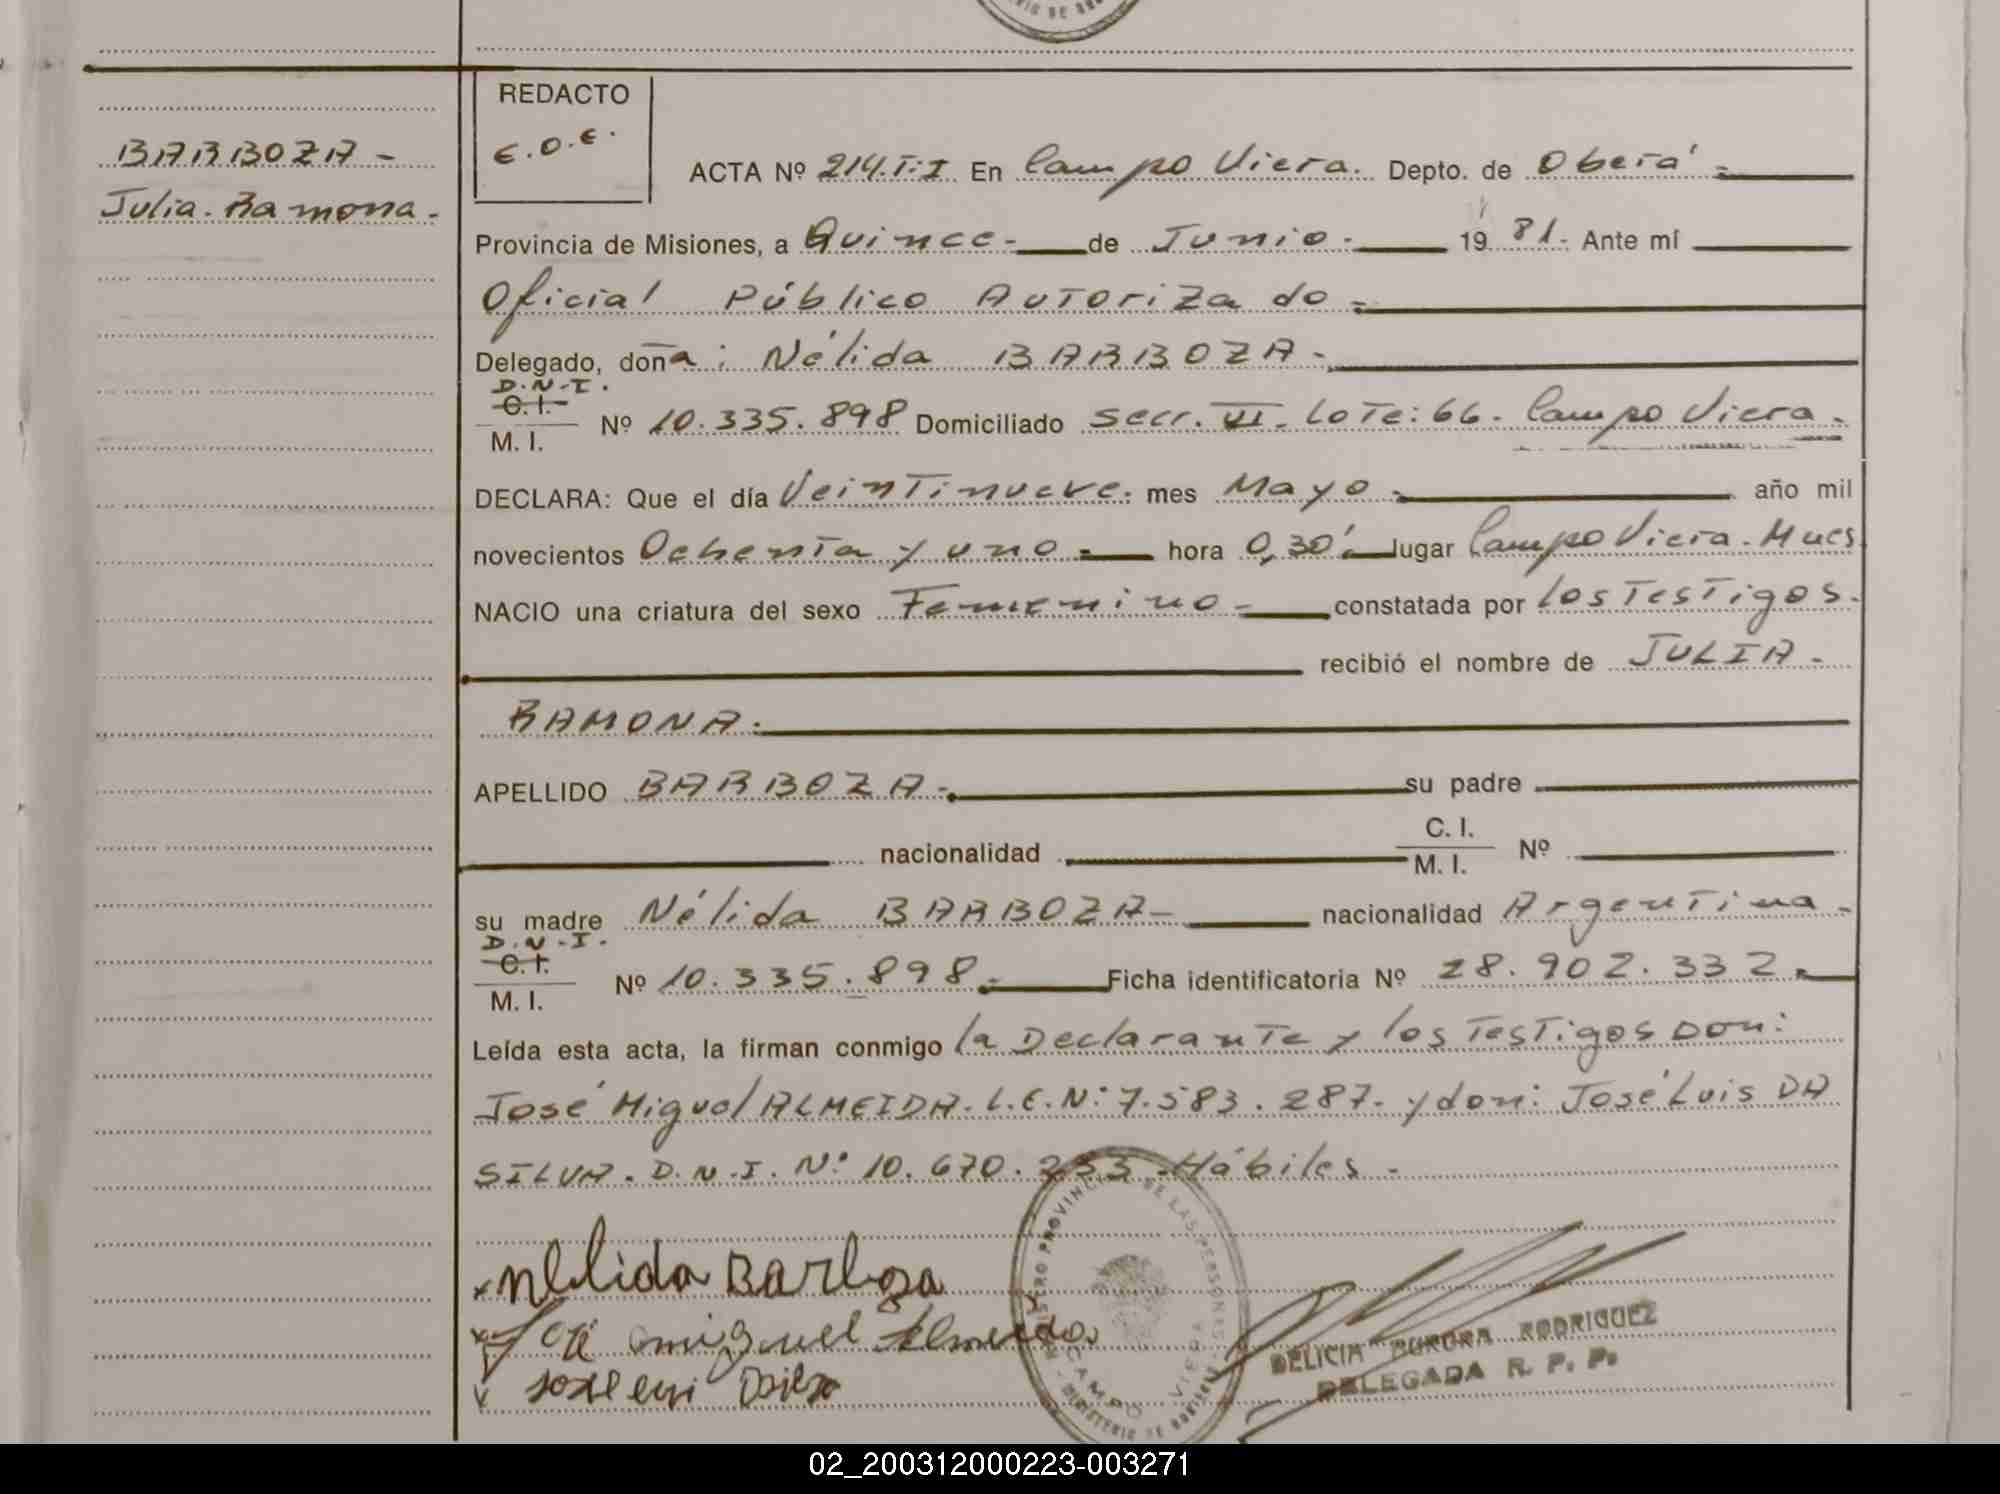 BARBOZA -
Julia. Ramona.-
REDACTO
E.O.E.
ACTA Nº 214.T:I En Campo Viera. Depto. de Oberá.-
Provincia de Misiones, a Quince.- de Junio.- 19 81.- Ante mí
Oficial Público Autorizado.-
Delegado, doña: Nélida BARBOZA.-
D.N.I.
C. I.
M. I.
Nº 10.335.898 Domiciliado Secc. VI. Lote: 66. Campo Viera.-
DECLARA: Que el día Veintinueve. mes Mayo.- año mil
novecientos Ochenta y uno.- hora 0,30'.- lugar Campo Viera. Mnes
NACIO una criatura del sexo Femenino.- constatada por los Testigos.-
recibió el nombre de JULIA.-
RAMONA.-
APELLIDO BARBOZA.- su padre
nacionalidad
C. I.
M. I.
Nº
su madre Nélida BARBOZA- nacionalidad Argentina.-
D.N.I.
C. I.
M. I.
Nº 10.335.898.- Ficha identificatoria Nº 28.902.332.-
Leída esta acta, la firman conmigo la Declarante y los Testigos Don:
José Miguel ALMEIDA. L.E.Nº: 7.583.287.- y don: José Luis DA
SILVA. D.N.I. Nº 10.670.233.- Hábiles.-
Nelida Barboza
José miguel Almeida
REGISTRO PROVINCIAL DE LAS PERSONAS
CAMPO VIERA
MINISTERIO DE GOBIERNO
DELICIA AURORA RODRIGUEZ
DELEGADA R. P. P.
02_200312000223-003271